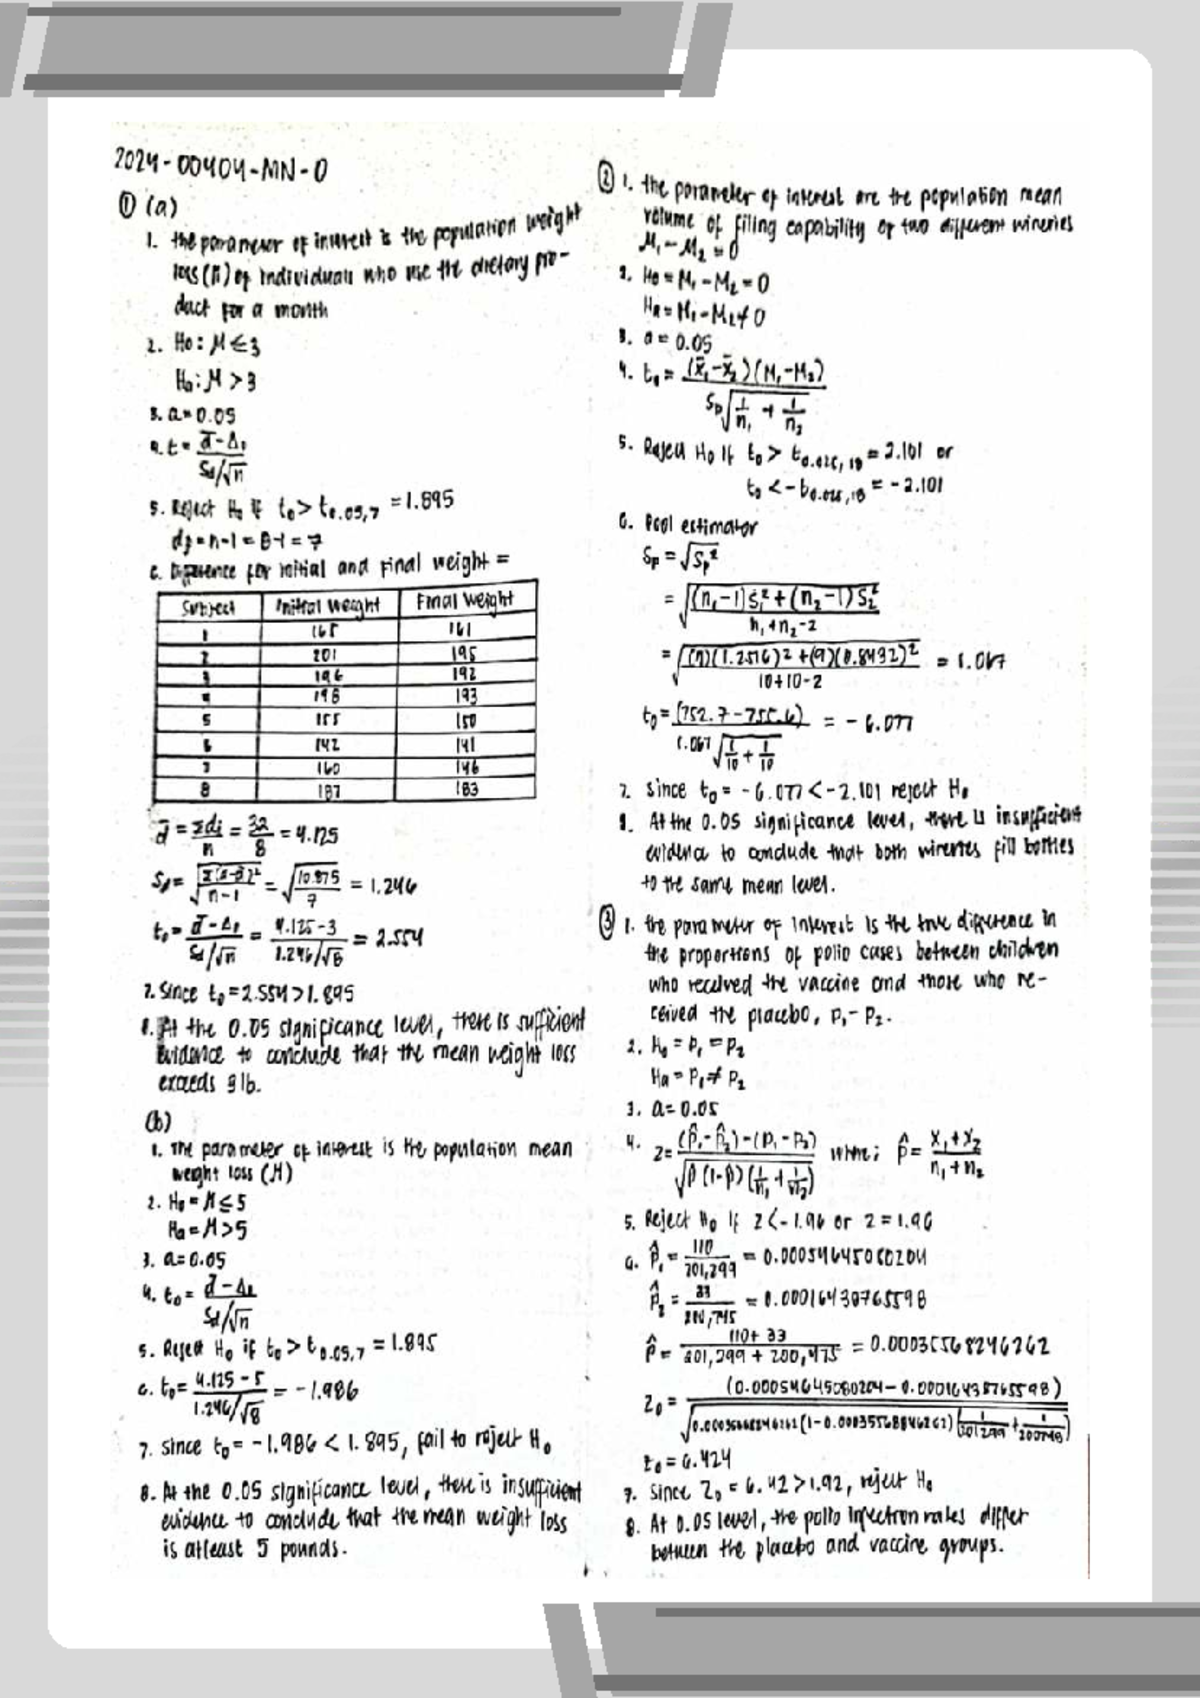 2024-00404-MN-0
① (a)
1. the parameter of interest is the population weight
loss (M) of individuals who use the dietary pro-
duct for a month
2. Ho: M ≤ 3
Ha: M > 3
3. a = 0.05
4. t = d̄ - Δ₀ / Sd/√n
5. Reject H₀ if t₀ > t₀.₀₅,₇ = 1.895
df = n-1 = 8-1 = 7
6. Difference for initial and final weight =
Subject Initial Weight Final Weight
1 165 161
2 201 195
3 196 192
4 198 193
5 155 150
6 142 141
7 160 146
8 187 183
d̄ = Σdi / n = 32 / 8 = 4.125
Sd = √ / n-1 = √10.875 / 7 = 1.246
t₀ = d̄ - Δ₀ / Sd/√n = 4.125 - 3 / 1.246/√8 = 2.554
7. Since t₀ = 2.554 > 1.895
8. At the 0.05 significance level, there is sufficient
evidence to conclude that the mean weight loss
exceeds 3 lb.
(b)
1. The parameter of interest is the population mean
weight loss (M)
2. H₀ = M ≤ 5
Ha = M > 5
3. a = 0.05
4. t₀ = d̄ - Δ₀ / Sd/√n
5. Reject H₀ if t₀ > t₀.₀₅,₇ = 1.895
6. t₀ = 4.125 - 5 / 1.246/√8 = -1.986
7. Since t₀ = -1.986 < 1.895, fail to reject H₀
8. At the 0.05 significance level, there is insufficient
evidence to conclude that the mean weight loss
is atleast 5 pounds.
② 1. the parameter of interest are the population mean
volume of filing capability of two different wineries
M₁ - M₂ = 0
2. Ho = M₁ - M₂ = 0
Ha = M₁ - M₂ ≠ 0
3. a = 0.05
4. t₀ = (x̄₁ - x̄₂)(M₁ - M₂) / Sp √1/n₁ + 1/n₂
5. Reject Ho if t₀ > t₀.₀₂₅,₁₈ = 2.101 or
t₀ < -t₀.₀₂₅,₁₈ = -2.101
6. Pool estimator
Sp = √Sp²
= √(n₁-1)S₁² + (n₂-1)S₂² / n₁+n₂-2
= √(9)(1.2516)² + (9)(0.8432)² / 10+10-2 = 1.067
t₀ = (752.7 - 755.6) / 1.067 √1/10 + 1/10 = -6.077
7. since t₀ = -6.077 < -2.101 reject H₀
8. At the 0.05 significance level, there is insufficient
evidence to conclude that both wineries fill bottles
to the same mean level.
③ 1. the parameter of interest is the true difference in
the proportions of polio cases between children
who received the vaccine and those who re-
ceived the placebo, p₁ - p₂.
2. H₀ = p₁ = p₂
Ha = p₁ ≠ p₂
3. a = 0.05
4. Z = (p̂₁ - p̂₂) - (p₁ - p₂) / √p̂(1-p̂)(1/n₁ + 1/n₂) where; p̂ = x₁ + x₂ / n₁ + n₂
5. Reject H₀ if Z < -1.96 or Z = 1.96
6. p̂₁ = 110 / 201,299 = 0.00054645080204
p̂₂ = 33 / 200,745 = 0.00016438765598
p̂ = 110 + 33 / 201,299 + = 0.00035568246262
Z₀ = (0.00054645080204 - 0.00016438765598) / √
Z₀ = 6.424
7. since Z₀ = 6.42 > 1.92, reject H₀
8. At 0.05 level, the polio infection rates differ
between the placebo and vaccine groups.